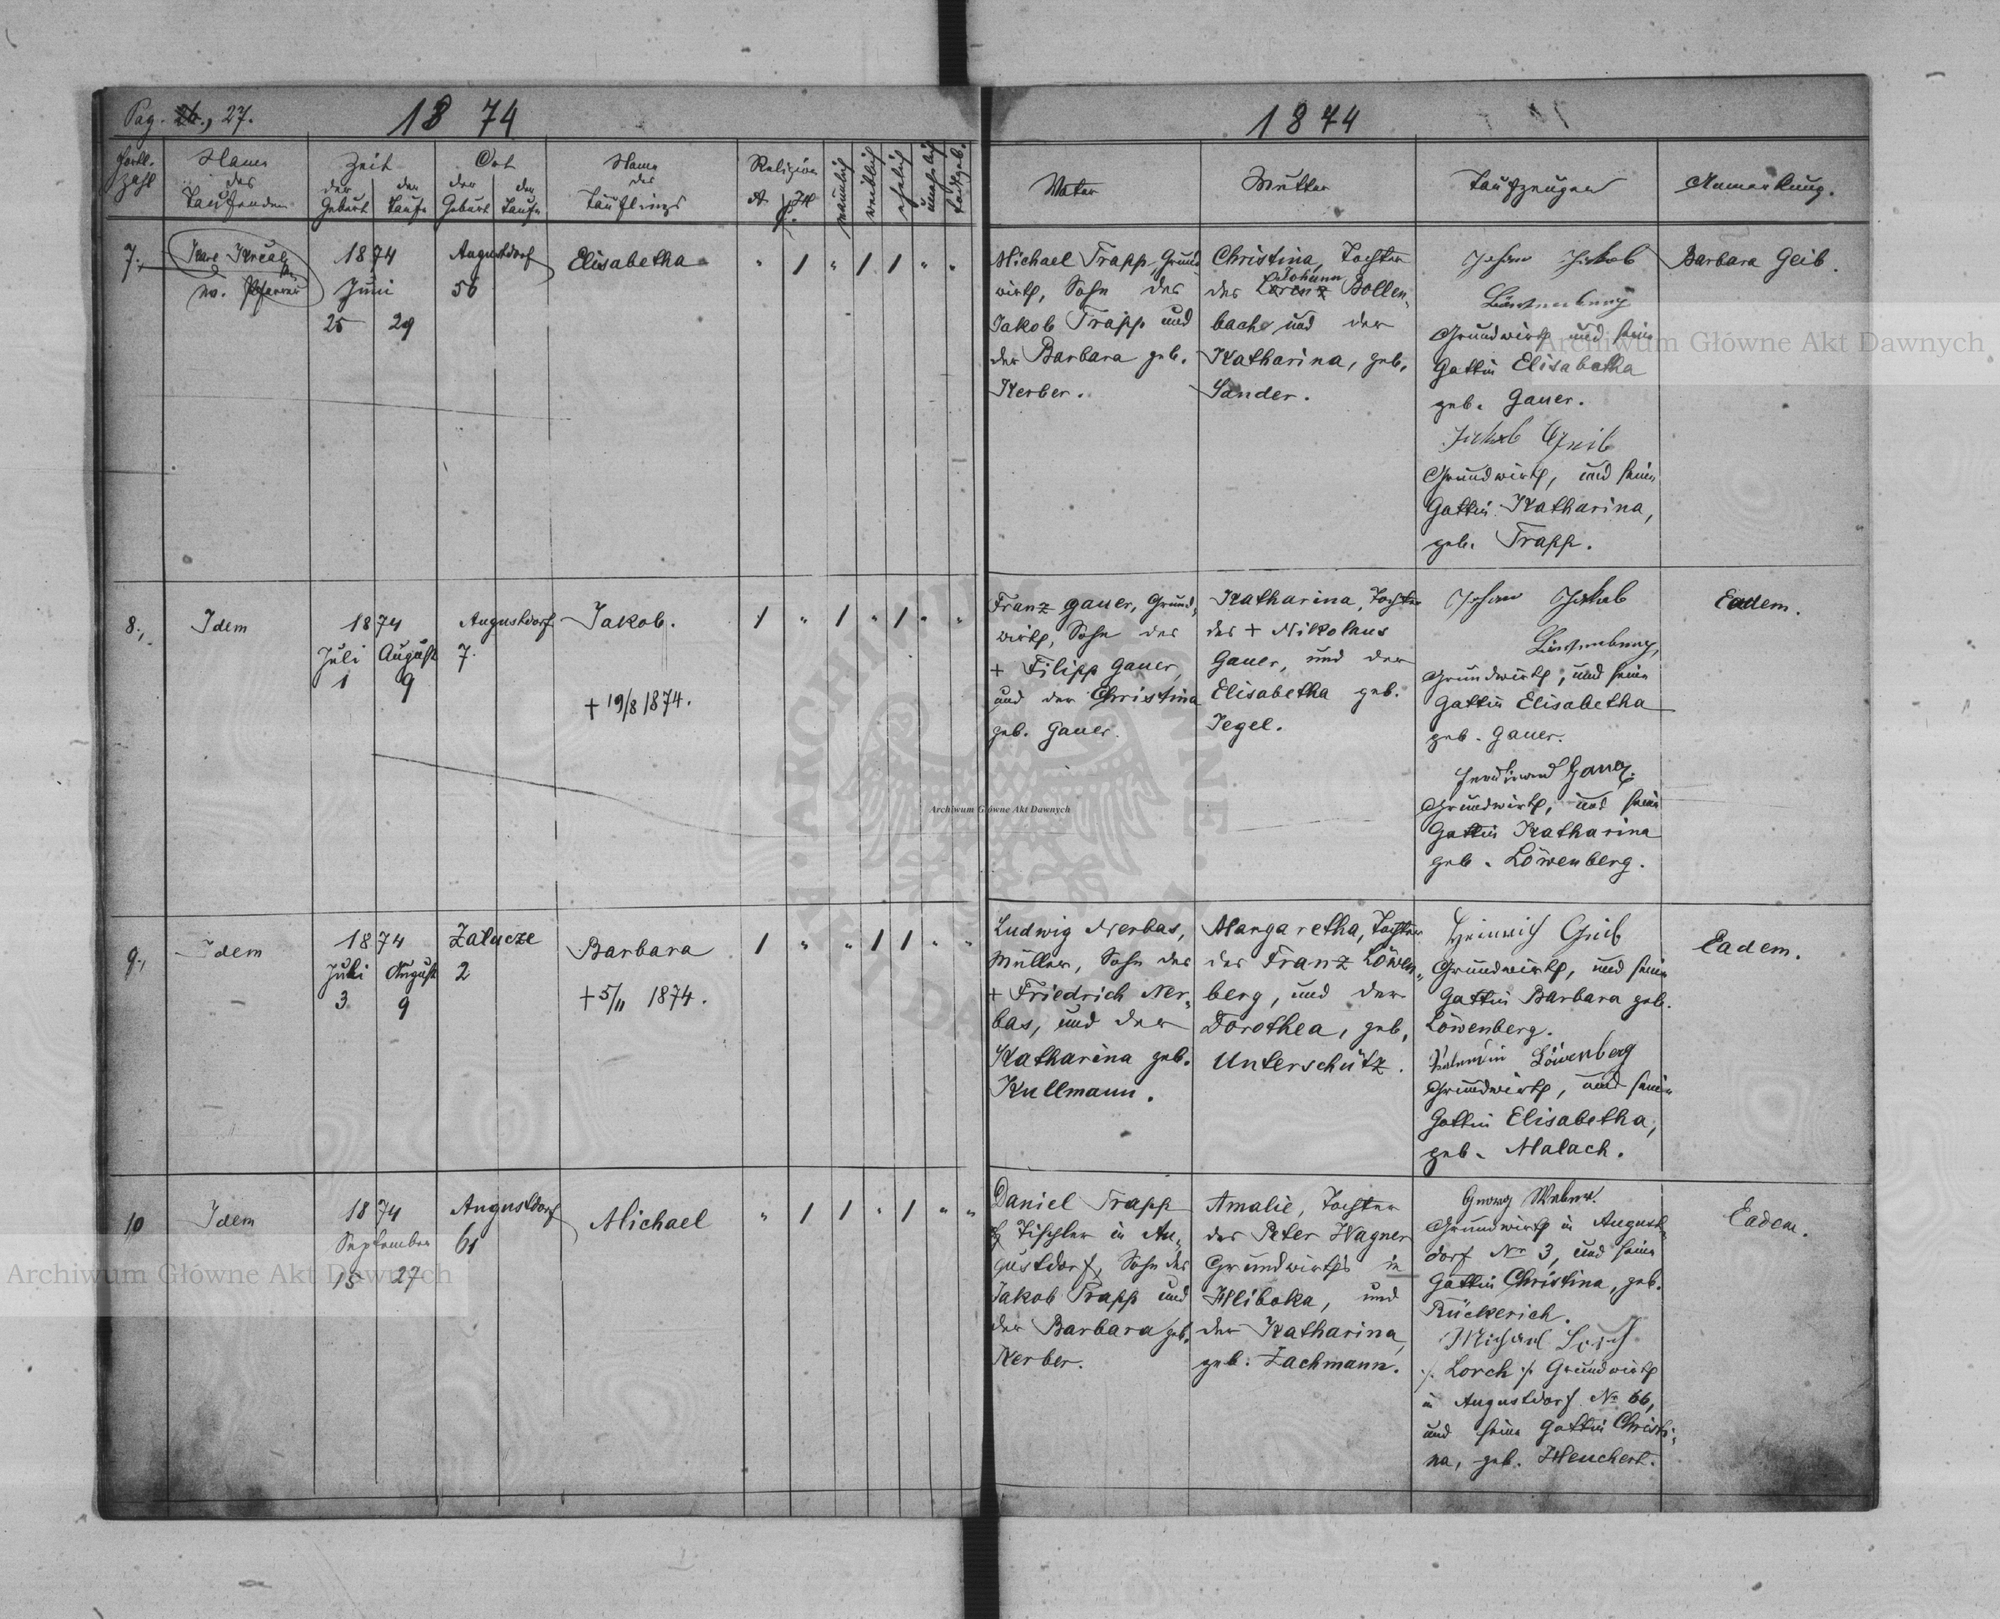 Pag. 26., 27.
1874
1874
Fortl. Zahl
Name des Taufenden
Zeit
der Geburt
der Taufe
Ort
der Geburt
der Taufe
Name des Täuflings
Religion
A
H
männlich
weiblich
ehelich
unehelich
todtgeb.
Vater
Mutter
Taufzeugen
Anmerkung.
7.,
Pfarrer
1874
Juni
25 29
Augustdorf
56
Elisabetha
" 1 " 1 1 " "
Michael Trapp, Grund
wirth, Sohn des
Jakob Trapp und
der Barbara geb.
Kerber.
Christina, Tochter
Johann
des Lorenz Bollen-
bach, und der
Katharina, geb.
Sander.
Johann Jakob
Grundwirth und seine
Gattin Elisabetha
geb. Gauer.
Jakob Geib
Grundwirth, und seine
Gattin Katharina,
geb. Trapp.
Barbara Geib.
8.,
Idem
1874
Juli August
1 9
Augustdorf
7.
Jakob.
+ 19/8 1874.
1 " 1 " 1 " "
Franz Gauer, Grund-
wirth, Sohn des
+ Filipp Gauer,
und der Christina
geb. Gauer.
Katharina, Tochter
des + Nikolaus
Gauer, und der
Elisabetha geb.
Jegel.
Johann Jakob
Grundwirth, und seine
Gattin Elisabetha
geb. Gauer.
Ferdinand Gauer.
Grundwirth, und seine
Gattin Katharina
geb. Löwenberg.
Eadem.
9.,
Idem
1874
Juli August
3 9
Zalucze
2
Barbara
+ 5/11 1874.
1 " " 1 1 " "
Ludwig Nerbas,
Müller, Sohn des
+ Friedrich Ner-
bas, und der
Katharina geb.
Kullmann.
Margaretha, Tochter
des Franz Löwen-
berg, und der
Dorothea, geb.
Unterschütz.
Heinrich Geib
Grundwirth, und seine
Gattin Barbara geb.
Löwenberg.
Valentin Löwenberg
Grundwirth, und seine
Gattin Elisabetha,
geb. Malach.
Eadem.
10
Idem
1874
September
15 27
Augustdorf
61
Michael
" 1 1 " 1 " "
Daniel Trapp
Tischler in Au-
gustdorf, Sohn des
Jakob Trapp und
der Barbara geb.
Kerber.
Amalie, Tochter
des Peter Wagner
Grundwirths in
Hliboka, und
der Katharina,
geb. Zachmann.
Georg Weber.
Grundwirth in August-
dorf Nr 3, und seine
Gattin Christina, geb.
Rückerich.
Michael Lorch
./. Lorch ./. Grundwirth
in Augustdorf Nr 66,
und seine Gattin Christi-
na, geb. Heuchert.
Eadem.
Archiwum Główne Akt Dawnych
Archiwum Główne Akt Dawnych
Archiwum Główne Akt Dawnych